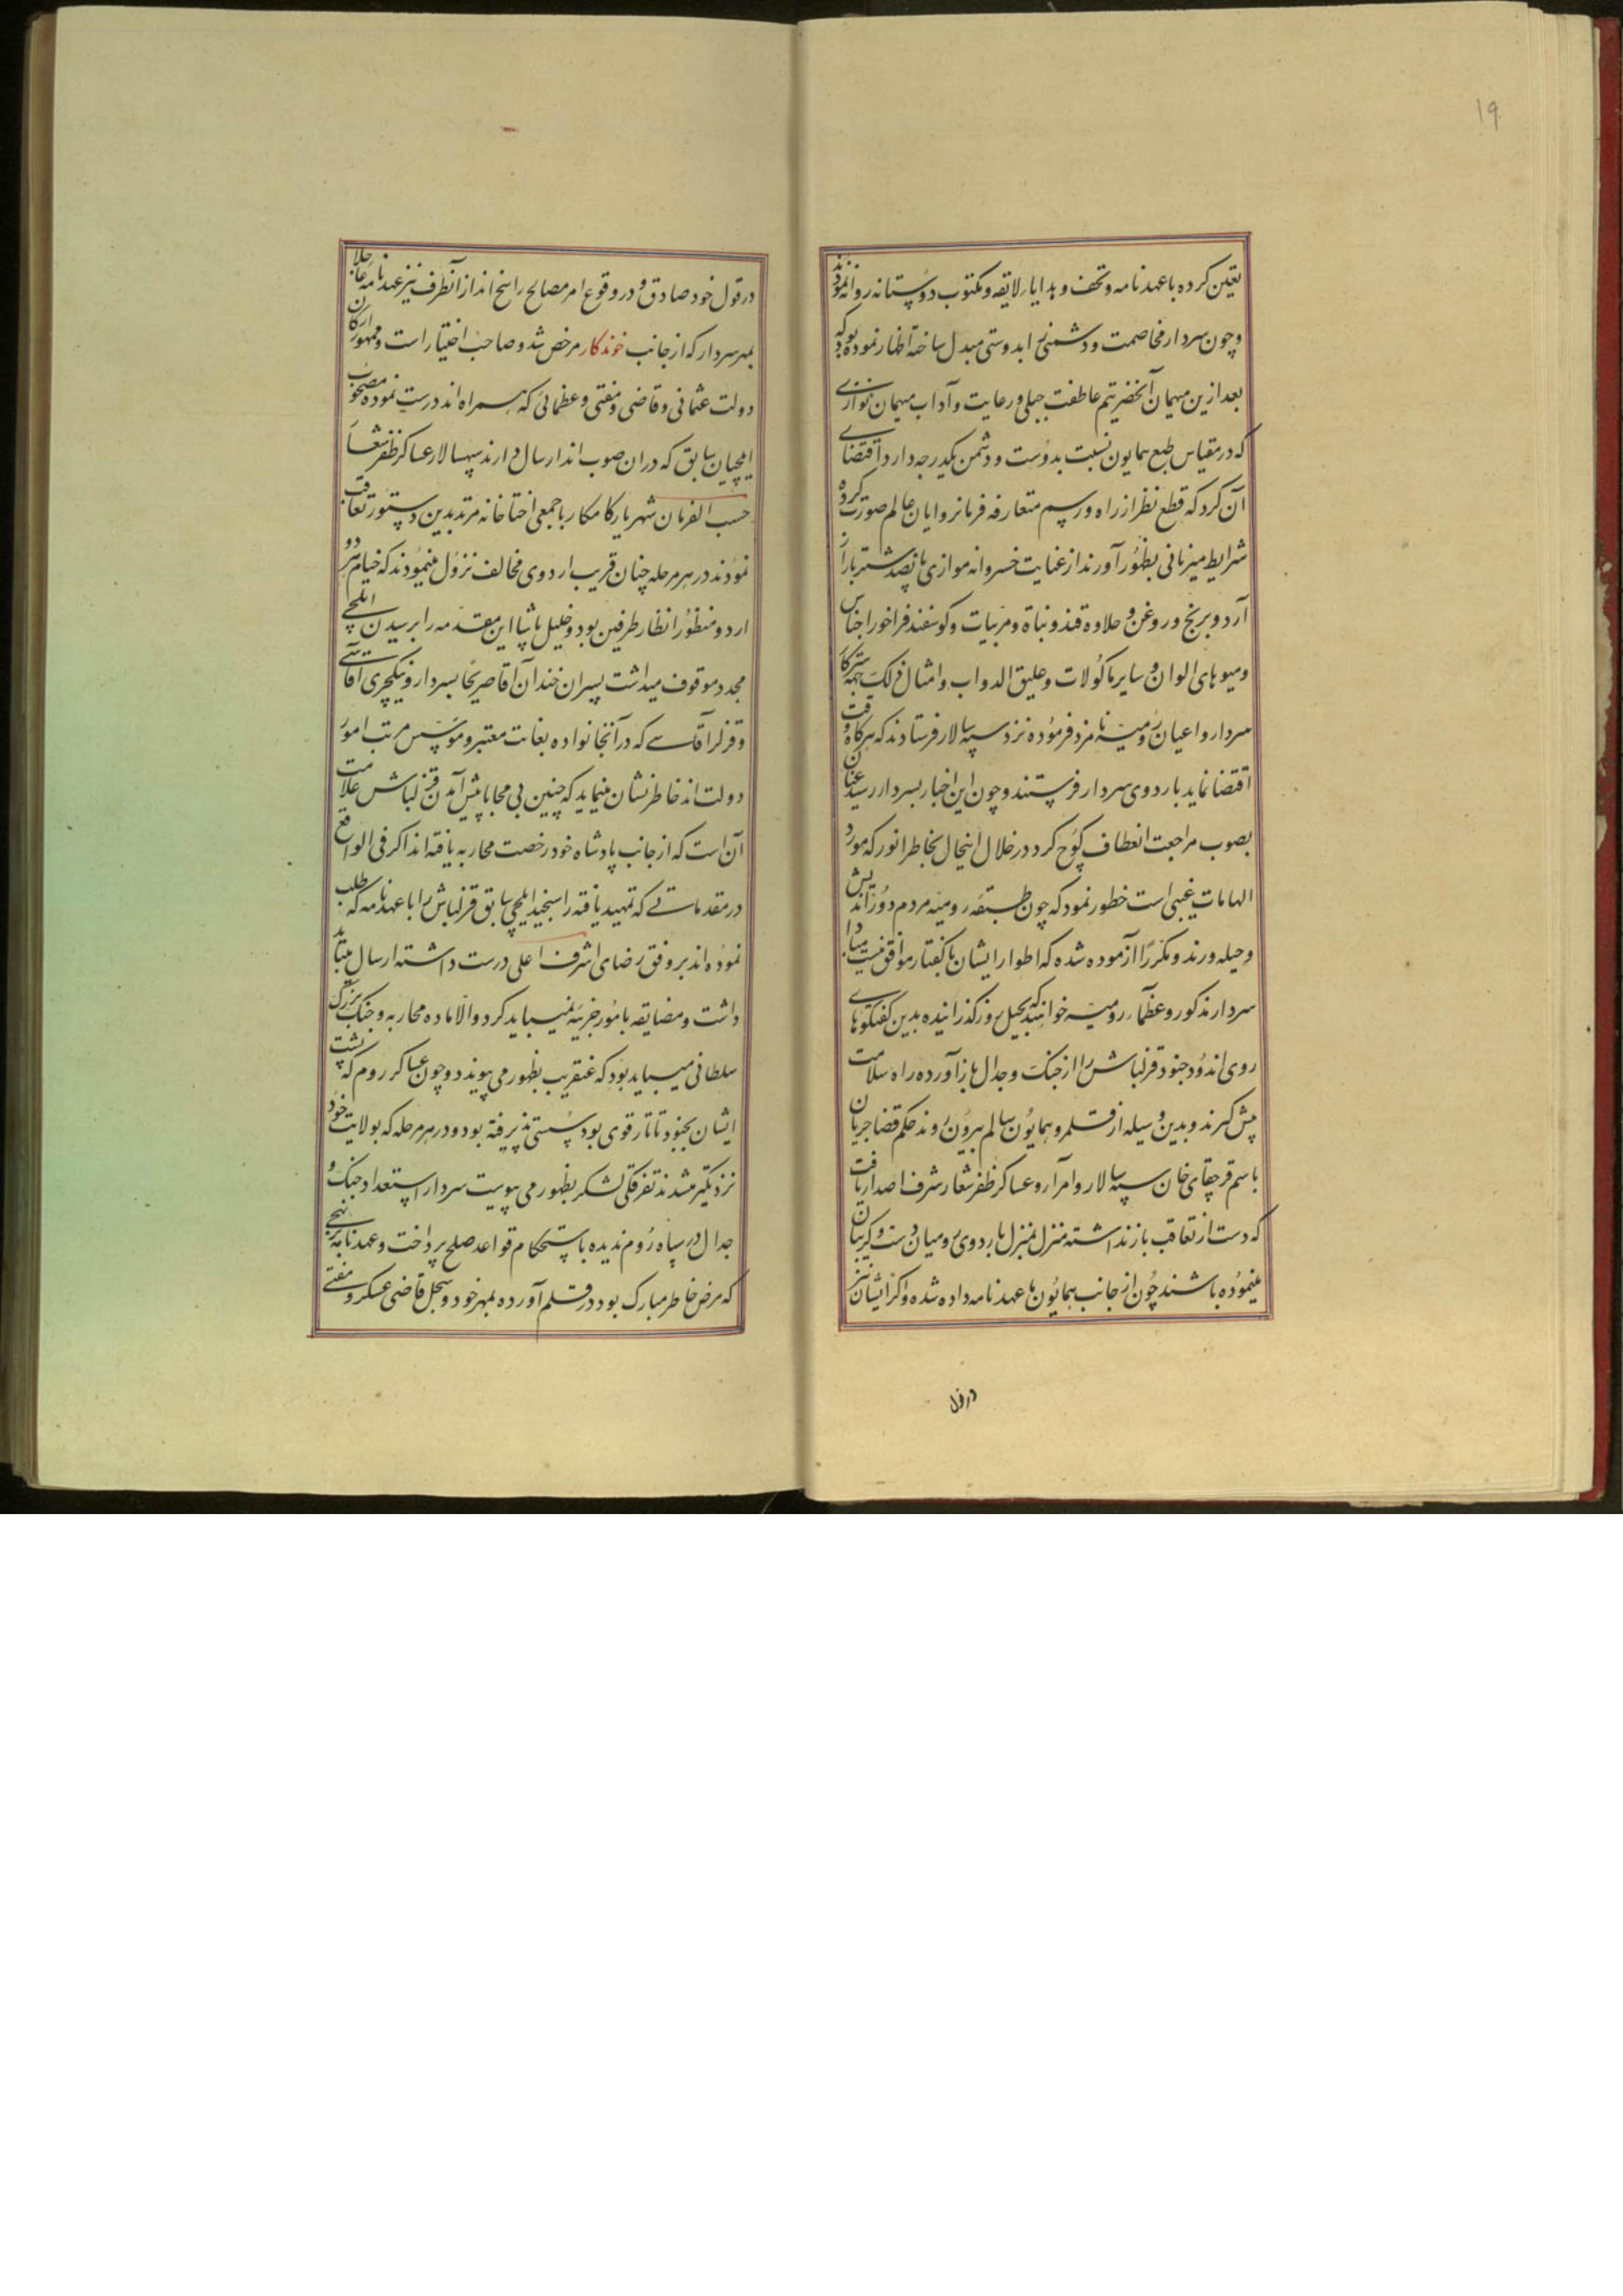 ۱۹
تعین کرده با عهدنامه و تحف و هدایاء لایقه و مکتوب دوستانه روانه نمودند
و چون سردار مخاصمت و دشمنی را بدوستی مبدل ساخته اظهار نموده بود که
بعد ازین میهمان آنحضرتیم عاطفت جبلی و رعایت و آداب میهمان نوازی
که در مقیاس طبع همایون نسبت بدوست و دشمن یکدرجه دارد اقتضای
آن کرد که قطع نظر از راه و رسم متعارفه فرمانروایان عالم صورت کرده
شرایط میزبانی بظهور آورند از عنایت خسروانه موازی پانصد شتر بار از
آرد و برنج و روغن و حلاوه قند و نباة و مربیات و کوسفند فراخور اجناس
و میوهای الوان و سایر ماکولات و علیق الدواب و امثال ذلک جهته
سردار و اعیان رومیه نامزد فرموده نزد سپه سالار فرستادند که هرکاه وقت
اقتضا نماید باردوی سردار فرستند و چون این اخبار بسردار رسید عنان
بصوب مراجعت انعطاف کوچ کرد در خلال اینحال بخاطر انور که مورد
الهامات غیبی است خطور نمود که چون طبقه رومیه مردم دور اندیش
و حیله ورند و مکررا آزموده شده که اطوار ایشان با کفتار موافق نیست مبادا
سردار مذکور و عظماء رومیه خواهند که بحیل روز کذرانیده بدین کفتکوهای
روی اندود جنود قزلباش را از جنک و جدال باز آورده راه سلامت
پیش کیرند و بدین وسیله از قلمرو همایون سالم بیرون روند حکم قضا جریان
باسم قرچقای خان سپه سالار و امرآ و عساکر ظفر شعار شرف اصدار یافت
که دست از تعاقب باز نداشته منزل بمنزل با اردوی رومیان دست و کریبان
میموده باشند چون از جانب همایون ما عهدنامه داده شده و اکر ایشان نیز
در قول
در قول خود صادق و در وقوع امر مصالح راسخ اند از آنطرف نیز عهدنامه
بمهر سردار که از جانب خوندکار مرخص شد و صاحب اختیار است و ممهور ارکان
دولت عثمانی و قاضی و مفتی و عظمائی که همراه اند درست نموده مصحوب
ایلچیان سابق که در ان صوب اند ارسال دارند سپهسالار عساکر ظفر شعار
حسب الفرمان شهریار کامکار با جمعی اختاخانه مرتد بدین دستور تعاقب
نمودند در هر مرحله چنان قریب اردوی مخالف نزول مینمودند که خیام هر دو
اردو منظور انظار طرفین بود و خلیل پاشا این مقدمه را برسیدن ایلچی
مجدد موقوف میداشت پسران خندان آقا صریحا بسردار و ینکچری آقاسی
و قزلر آقاسی که در آنخانواده بغایت معتبر و موسس مرتب امور
دولت اند خاطرنشان مینماید که چنین بی محابا پیش آمدن قزلباش علامت
آن است که از جانب پادشاه خود رخصت محاربه یافته اند اکر فی الواقع
در مقدماتی که تمهید یافته راسخید ایلچی سابق قزلباش را با عهدنامه که طلب
نموده اند بر وفق رضای اشرف اعلی درست داشته ارسال میباید
داشت و مضایقه بامور جزییه نمیباید کرد و الا آماده محاربه و جنک بزرک
سلطانی میباید بود که عنقریب بظهور می پیوندد و چون عساکر روم که پشت
ایشان بجنود تاتار قوی بود سستی پذیرفته بود و در هر مرحله که بولایت خود
نزدیکتر میشدند تفرقکی لشکر بظهور می پیوست سردار استعداد جنک و
جدال در سپاه روم ندیده باستحکام قواعد صلح پرداخت و عهدنامه بنهجی
که مرض خاطر مبارک بود در قلم آورده بمهر خود و سجل قاضی عسکر و مفتی